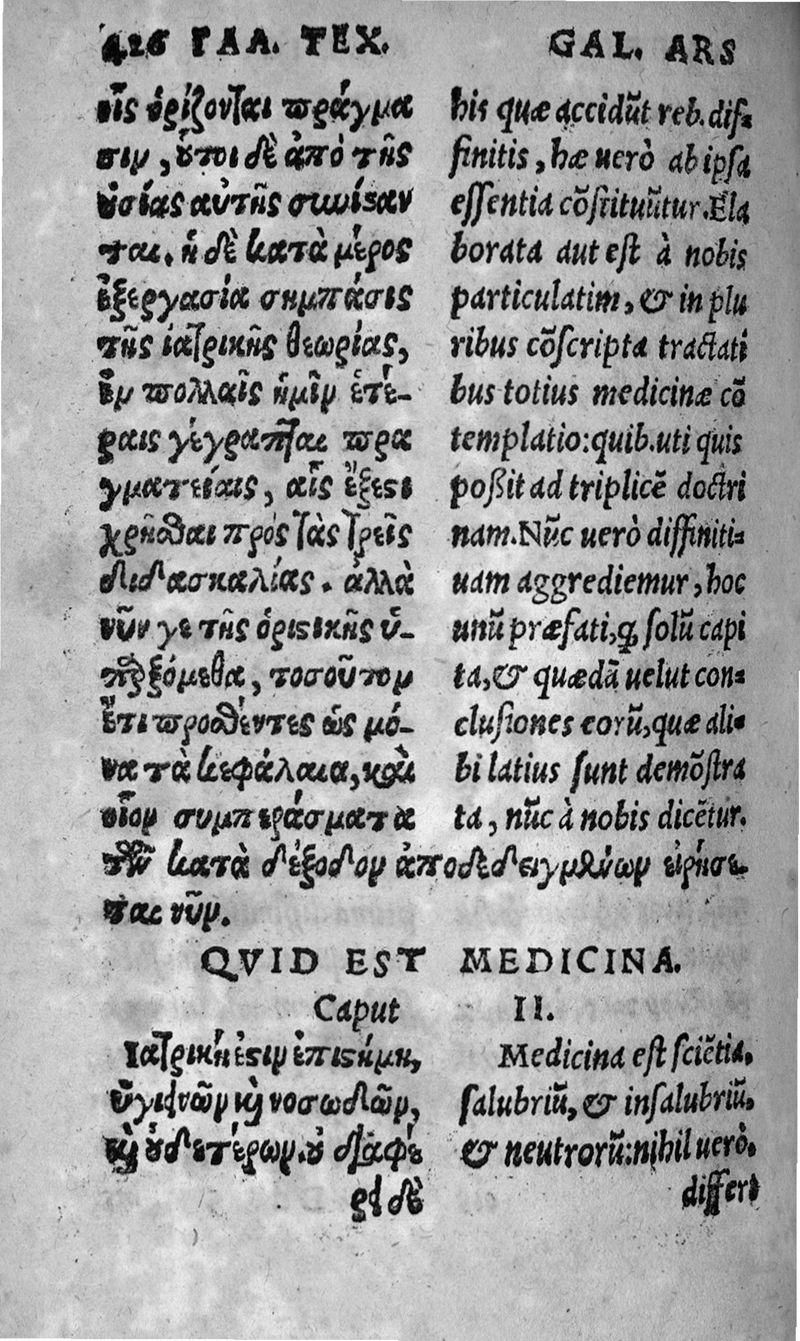 426 ΓΑΛ. ΤΕΧ.
οῖς ὁρίζονται πράγμα
σιν, οὗτοι δὲ ἀπὸ τῆς
οὐσίας αὐτῆς συνίσταν
ται. ἡ δὲ κατὰ μέρος
ἐξεργασία συμπάσης
τῆς ἰατρικῆς θεωρίας,
ἐν πολλαῖς ἡμῖν ἑτέ-
ραις γέγραπται πρα
γματείαις, αἷς ἔξεστι
χρῆσθαι πρὸς τὰς τρεῖς
διδασκαλίας. ἀλλὰ
νῦν γε τῆς ὁριστικῆς ὑ-
παρξόμεθα, τοσοῦτον
ἔτι προσθέντες ὡς μό-
να τὰ κεφάλαια, καὶ
οἷον συμπεράσματα
τῶν κατὰ διέξοδον ἀποδεδειγμένων εἰρήσε-
ται νῦν.
GAL. ARS
his quæ accidũt reb. dif-
finitis, hæ uerò ab ipsa
essentia cõstituũtur. Ela
borata aut est à nobis
particulatim, & in plu
ribus cõscripta tractati
bus totius medicinæ cõ
templatio: quib. uti quis
poßit ad triplicẽ doctri
nam. Nũc uerò diffiniti-
uam aggrediemur, hoc
unũ præfati, ꝙ solũ capi
ta, & quædã uelut con-
clusiones eorũ, quæ ali-
bi latius sunt demõstra
ta, nũc à nobis dicẽtur.
QVID EST MEDICINA.
Caput II.
Ιατρική ἐστιν ἐπιστήμη,
ὑγιεινῶν καὶ νοσωδῶν,
καὶ οὐδετέρων. οὐ διαφέ
ρει δὲ
Medicina est sciẽtia,
salubriũ, & insalubriũ,
& neutrorũ: nihil uerò
differt